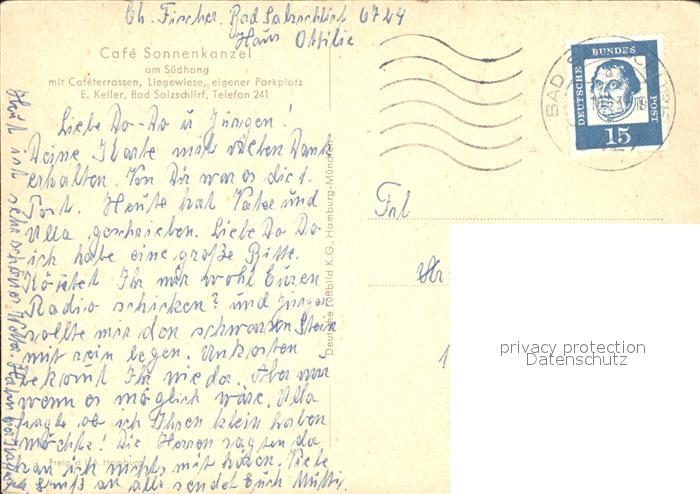 Ch. Fischer. Bad Salzschlirf 6424
Haus Ottilie
Café Sonnenkanzel
am Südhang
mit Caféterrassen, Liegewiese, eigener Parkplatz
E. Keller, Bad Salzschlirf, Telefon 241
Liebe Do-Do u Jürgen!
Deine Karte mit vielen Dank
erhalten. Von Dir war es die 1.
Post. Heute hat Vater und
Ulla geschrieben. Liebe Do Do
ich habe eine große Bitte.
Könntet Ihr mir wohl Euren
Radio schicken? und Jürgen
sollte mir den schwarzen Stein
mit rein legen. Unkosten
bekomt Ihr wieder. Aber nur
wenn es möglich wäre. Ulla
fragte ob ich Ihren klein haben
möchte! Die Herren sagten da
kan ich nichts mit hören. Viele
Grüß an alle sendet Euch Mutti.
Heut ist sehr schönes Wetter.
Deutsche Luftbild K.G., Hamburg-München
Freigeg. Hamburg
DEUTSCHE BUNDES POST
15
BAD
Frl
privacy protection
Datenschutz